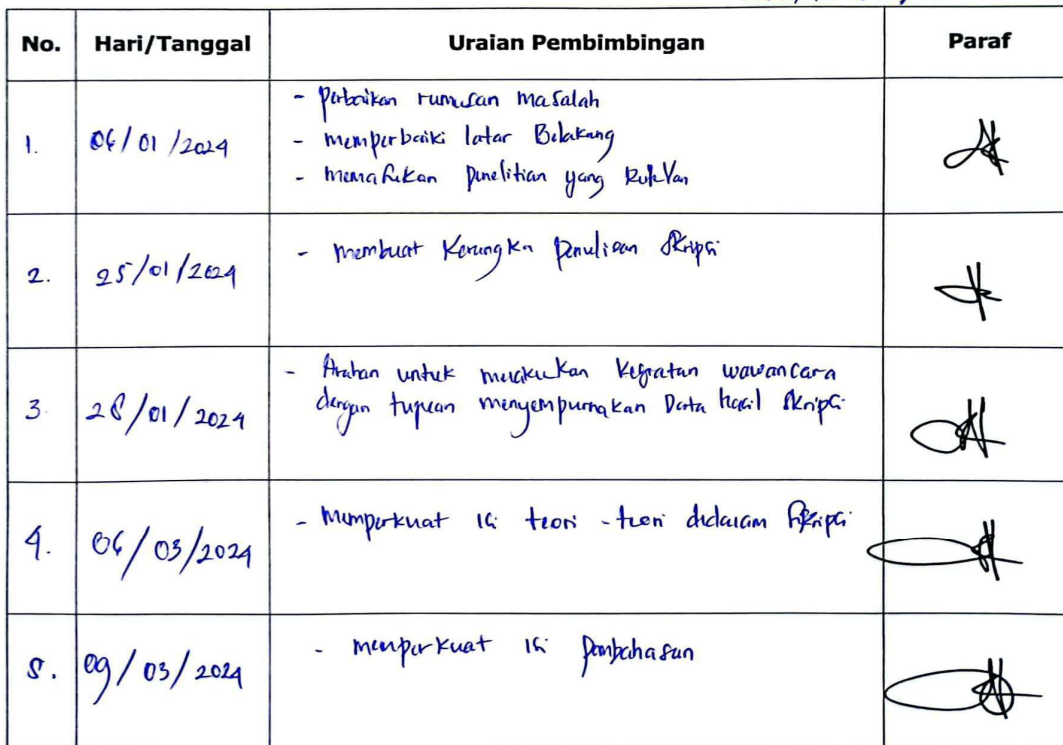 No. Hari/Tanggal Uraian Pembimbingan Paraf
1. 06/01/2024
- Perbaikan rumusan masalah
- memperbaiki latar Belakang
- memasukan penelitian yang Relevan
2. 25/01/2024
- membuat Kerangka penulisan Skripsi
3. 28/01/2024
- Arahan untuk melakukan Kegiatan wawancara
dengan tujuan menyempurnakan Data hasil Skripsi
4. 06/03/2024
- memperkuat isi teori - teori didalam Skripsi
5. 09/03/2024
- memperkuat isi pembahasan